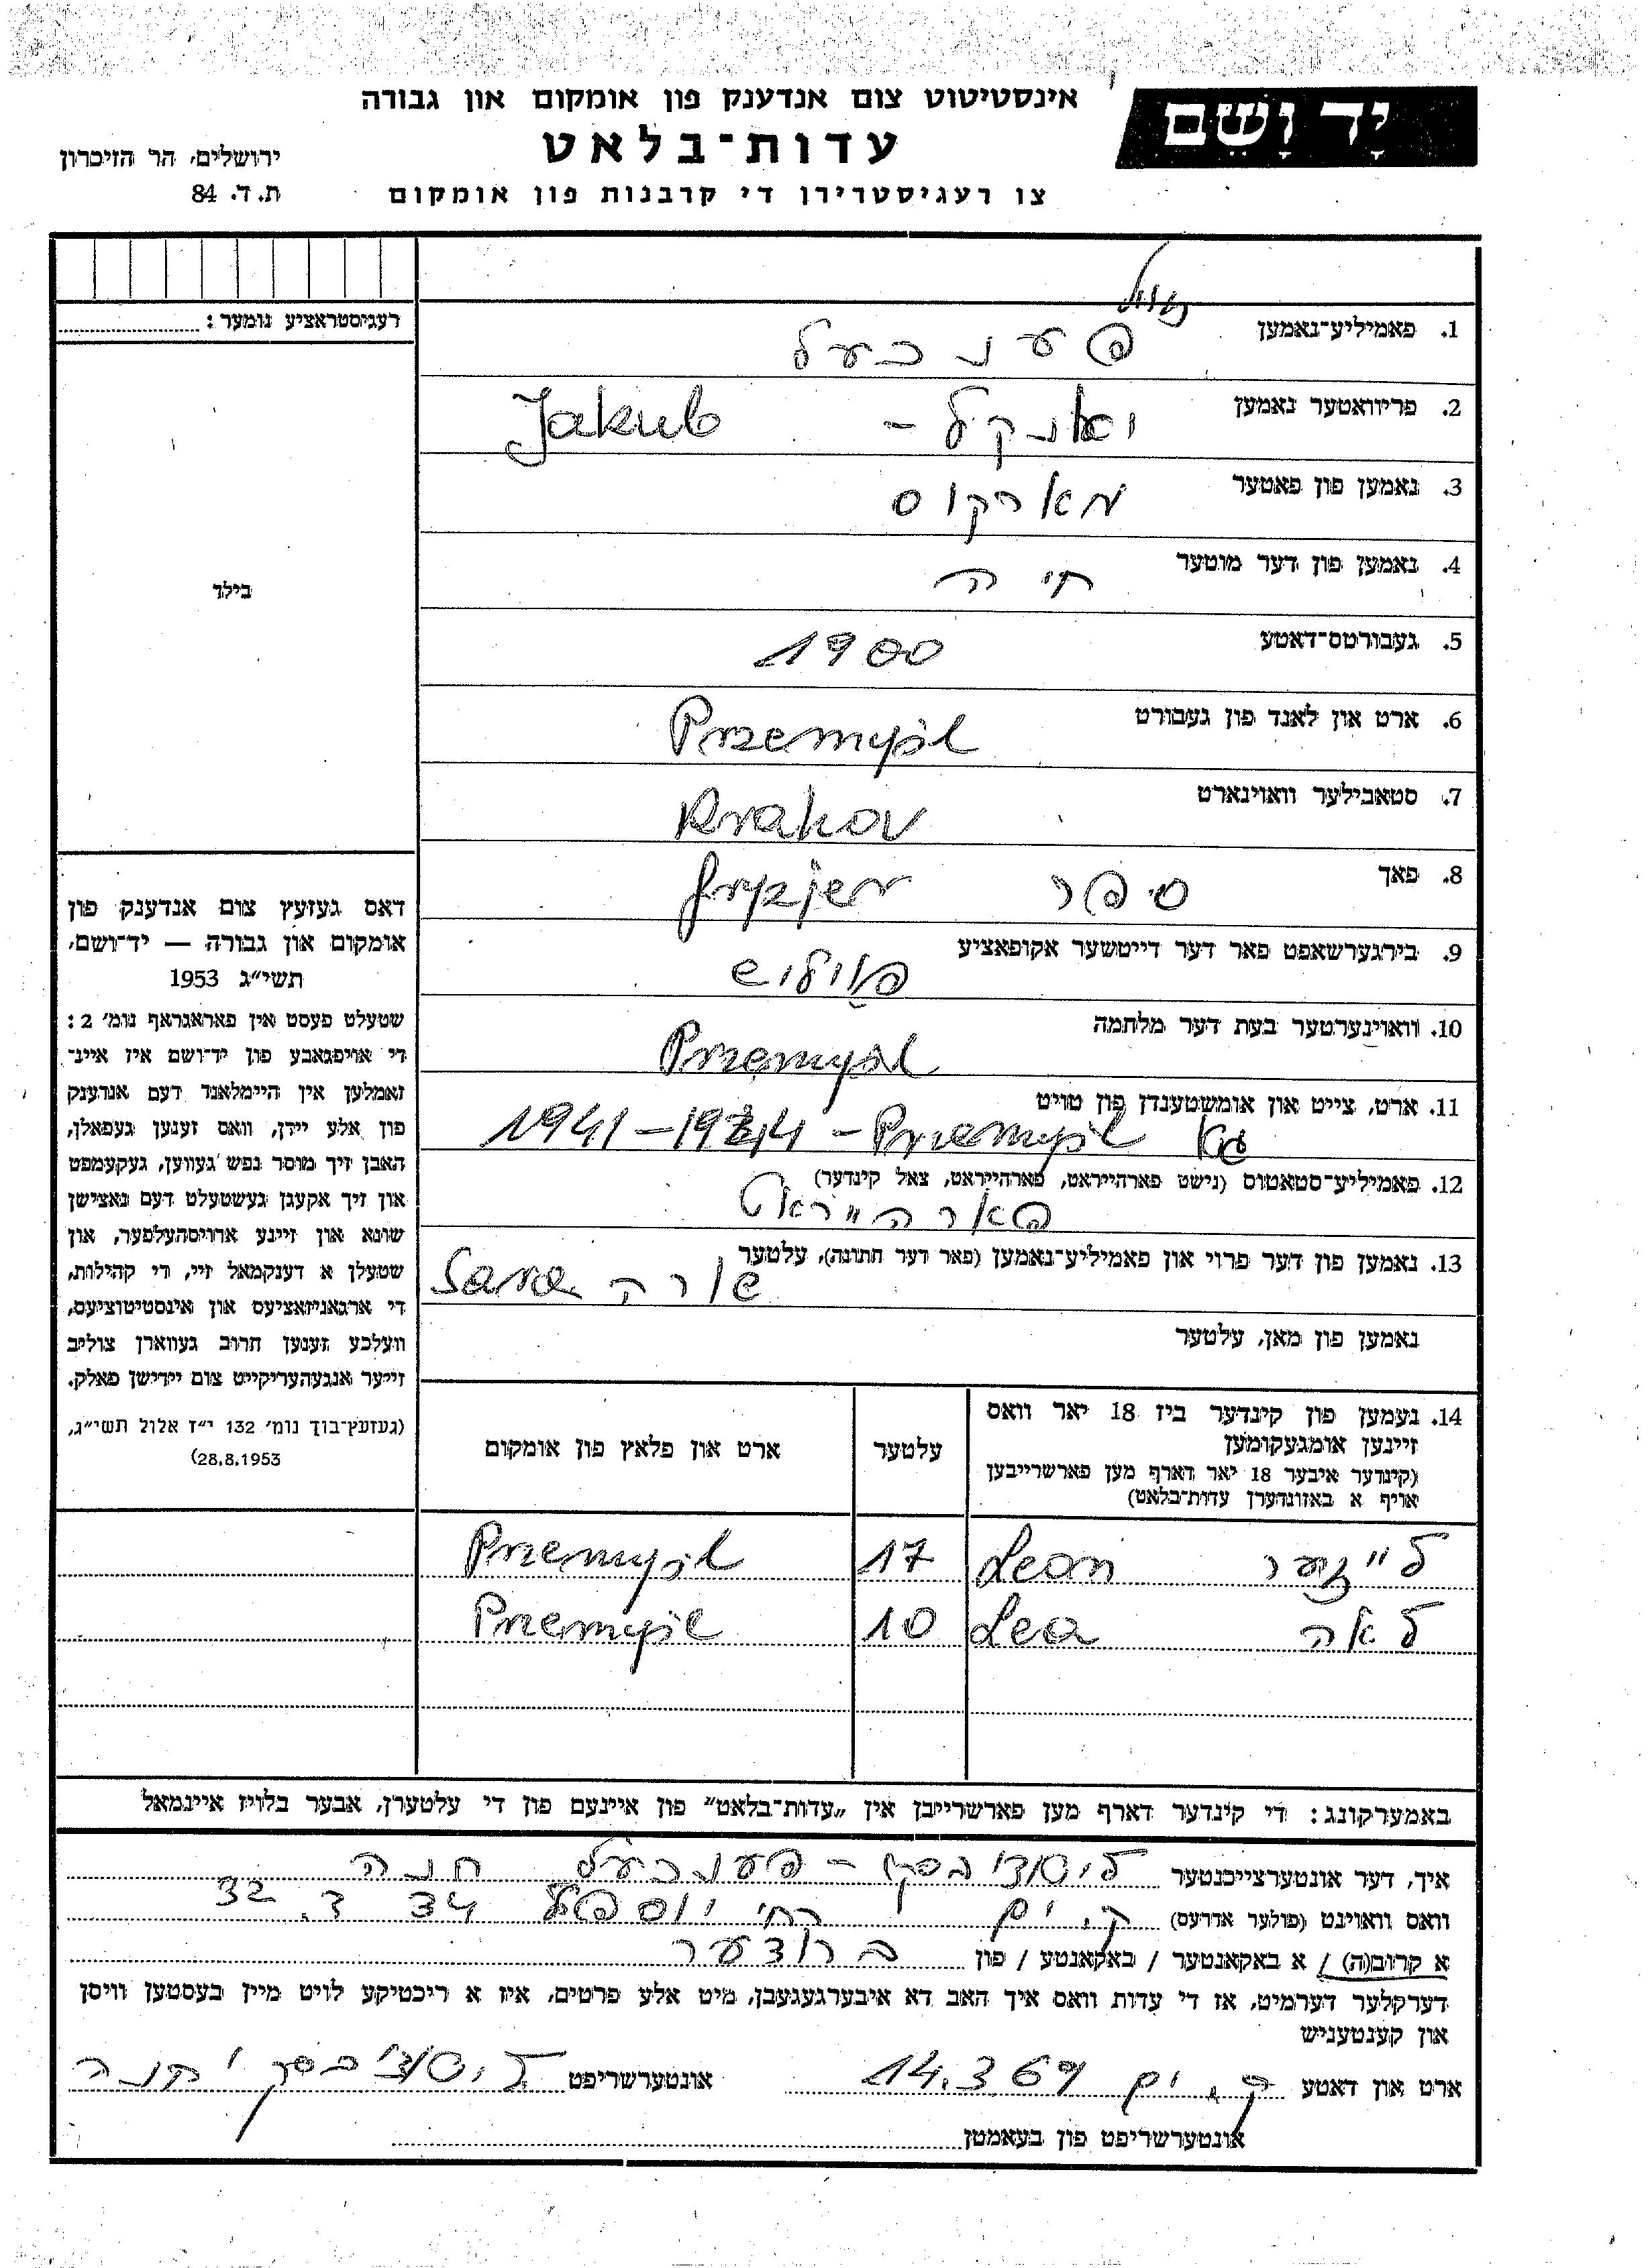 יָד וָשֵׁם
אינסטיטוט צום אנדענק פון אומקום און גבורה
עדות־בלאט
צו רעגיסטרירן די קרבנות פון אומקום
ירושלים, הר הזיכרון
ת.ד. 84
רעגיסטראציע נומער:
בילד
דאס געזעץ צום אנדענק פון
אומקום און גבורה — יד־ושם,
תשי״ג 1953
שטעלט פעסט אין פאראגראף נומ׳ 2:
די אויפגאבע פון יד־ושם איז איינ־
זאמלען אין היימלאנד דעם אנדענק
פון אלע יידן, וואס זענען געפאלן,
האבן זיך מוסר נפש געווען, געקעמפט
און זיך אקעגן געשטעלט דעם נאצישן
שונא און זיינע ארויסהעלפער, און
שטעלן א דענקמאל זיי, די קהילות,
די ארגאניזאציעס און אינסטיטוציעס,
וועלכע זענען חרוב געווארן צוליב
זייער אנגעהעריקייט צום יידישן פאלק.
(געזעץ־בוך נומ׳ 132 י״ז אלול תשי״ג,
28.8.1953)
1. פאמיליע־נאמען פענכעל
2. פריוואטער נאמען יאנקל - Jakub
3. נאמען פון פאטער מארקוס
4. נאמען פון דער מוטער חיה
5. געבורטס־דאטע 1900
6. ארט און לאנד פון געבורט Przemyśl
7. סטאבילער וואוינארט Krakov
8. פאך ספר fryzjer
9. בירגערשאפט פאר דער דייטשער אקופאציע פויליש
10. וואוינערטער בעת דער מלחמה Przemyśl
11. ארט, צייט און אומשטענדן פון טויט
Przemyśl – 1941 – 1944
12. פאמיליע־סטאטוס (נישט פארהייראט, פארהייראט, צאל קינדער)
פארהייראט
13. נאמען פון דער פרוי און פאמיליע־נאמען (פאר דער חתונה), עלטער
שרה Sara
נאמען פון מאן, עלטער
14. נעמען פון קינדער ביז 18 יאר וואס
זיינען אומגעקומען
(קינדער איבער 18 יאר דארף מען פארשרייבן
אויף א באזונדערן עדות־בלאט)
עלטער
ארט און פלאץ פון אומקום
לייזער Leon 17 Przemyśl
לאה Lea 10 Przemyśl
באמערקונג: די קינדער דארף מען פארשרייבן אין „עדות־בלאט״ פון איינעם פון די עלטערן, אבער בלויז איינמאל
איך, דער אונטערצייכנטער ליסוצ׳בסקי - פענכעל חנה
וואס וואוינט (פולער אדרעס) ק. ים רח׳ יוספטל 34 ד. 32
א קרוב(ה) / א באקאנטער / באקאנטע / פון ברודער
דערקלער דערמיט, אז די עדות וואס איך האב דא איבערגעגעבן, מיט אלע פרטים, איז א ריכטיקע לויט מיין בעסטען וויסן
און קענטעניש
ארט און דאטע ק. ים 14.3.69 אונטערשריפט ליסוצ׳בסקי חנה
אונטערשריפט פון באאמטן